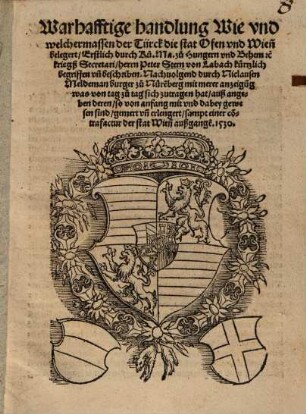 Warhafftige handlung Wie vnd
welchermassen der Türck die stat Ofen vnd Wieñ
belegert/ Erstlich durch Kü. Ma. zů Hungern vnd Behem ꝛc
kriegß Secretari/ herrn Peter Stern von Labach kürtzlich
begriffen vñ beschriben. Nachuolgend durch Niclausen
Meldeman burger zů Nürnberg mit merer anzeigūg
was von tag zů tag sich zutragen hat/ auß ange-
ben deren/ so von anfang mit vnd dabey gewe
sen sind/ gemert vñ erlengert/ sampt einer cō-
trafactur der stat Wieñ außgangē. 1530.